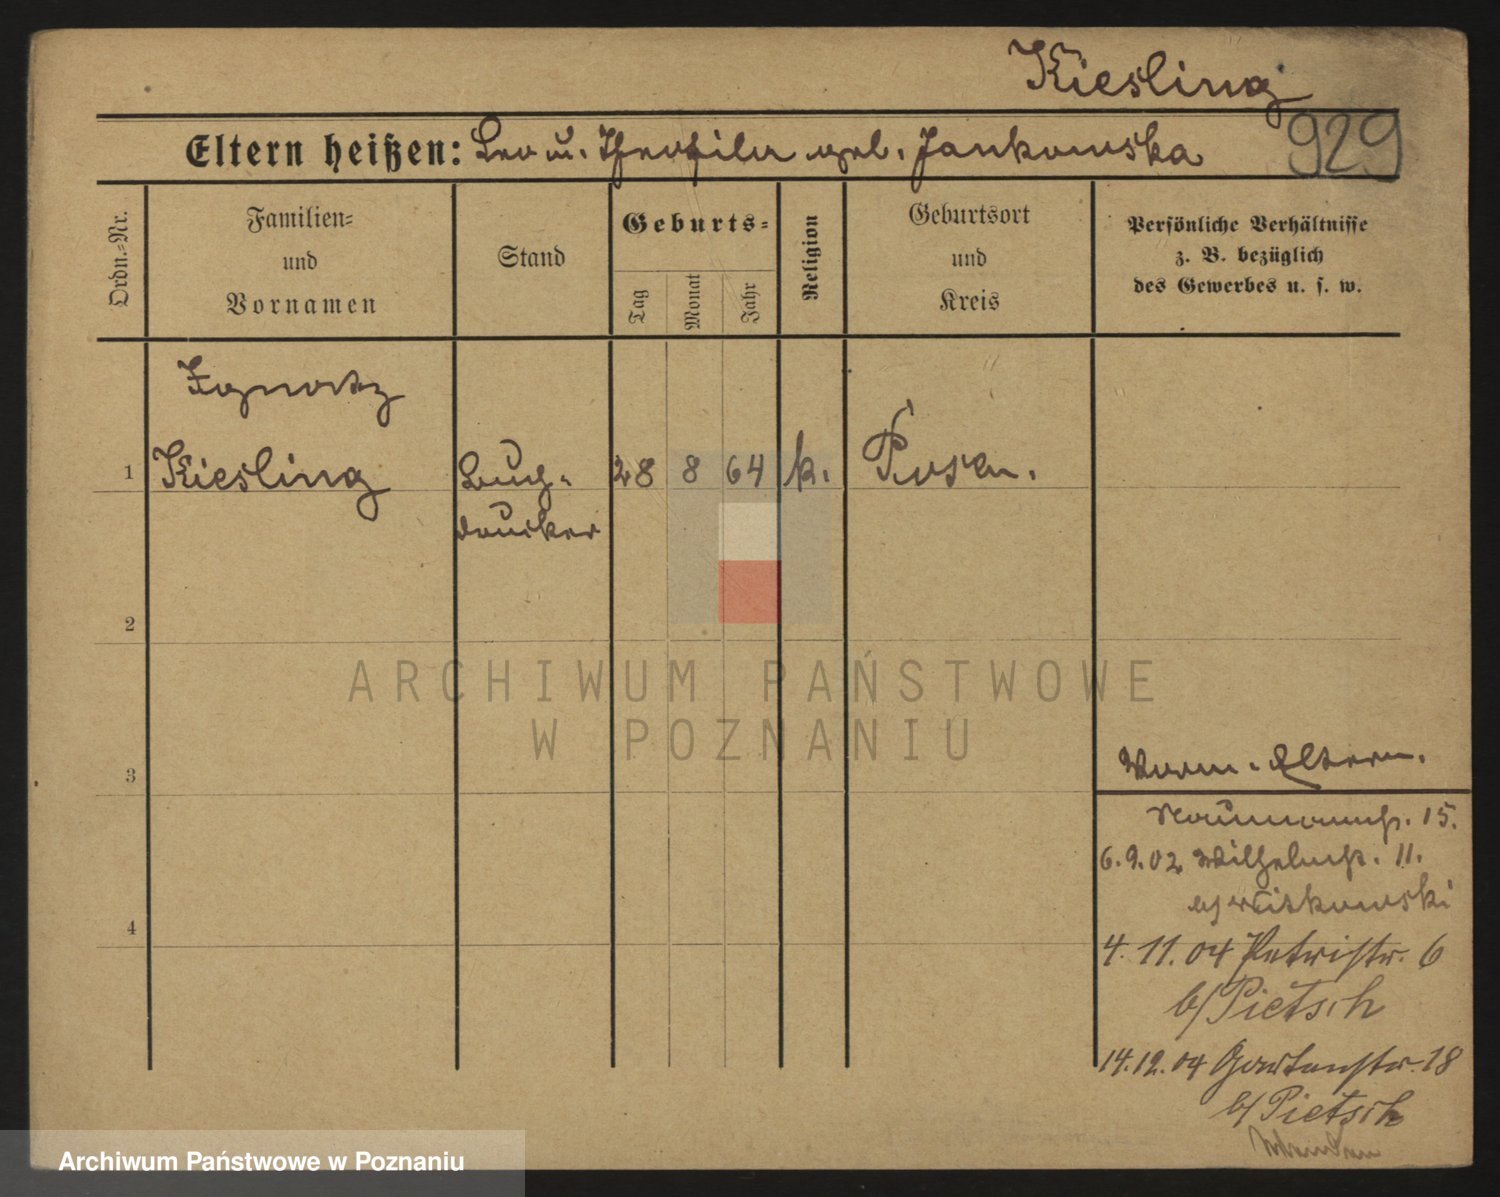 Kiesling
929
Eltern heißen: Leo u. Theofila geb. Jankowska
Ordn.=Nr.
Familien=
und
Vornamen
Stand
Geburts=
Tag
Monat
Jahr
Religion
Geburtsort
und
Kreis
Persönliche Verhältnisse
z. B. bezüglich
des Gewerbes u. s. w.
Ignatz
1 Kiesling Buch- 28 8 64 k. Posen.
drucker
2
ARCHIWUM PAŃSTWOWE
W POZNANIU
3
Eltern.
Naumannstr. 15.
6.9.02 Wilhelmstr. 11.
b/ Witkowski
4
4.11.04 Petristr. 6
b/ Pietsch
14.12.04 Gartenstr. 18
b/ Pietsch
Archiwum Państwowe w Poznaniu